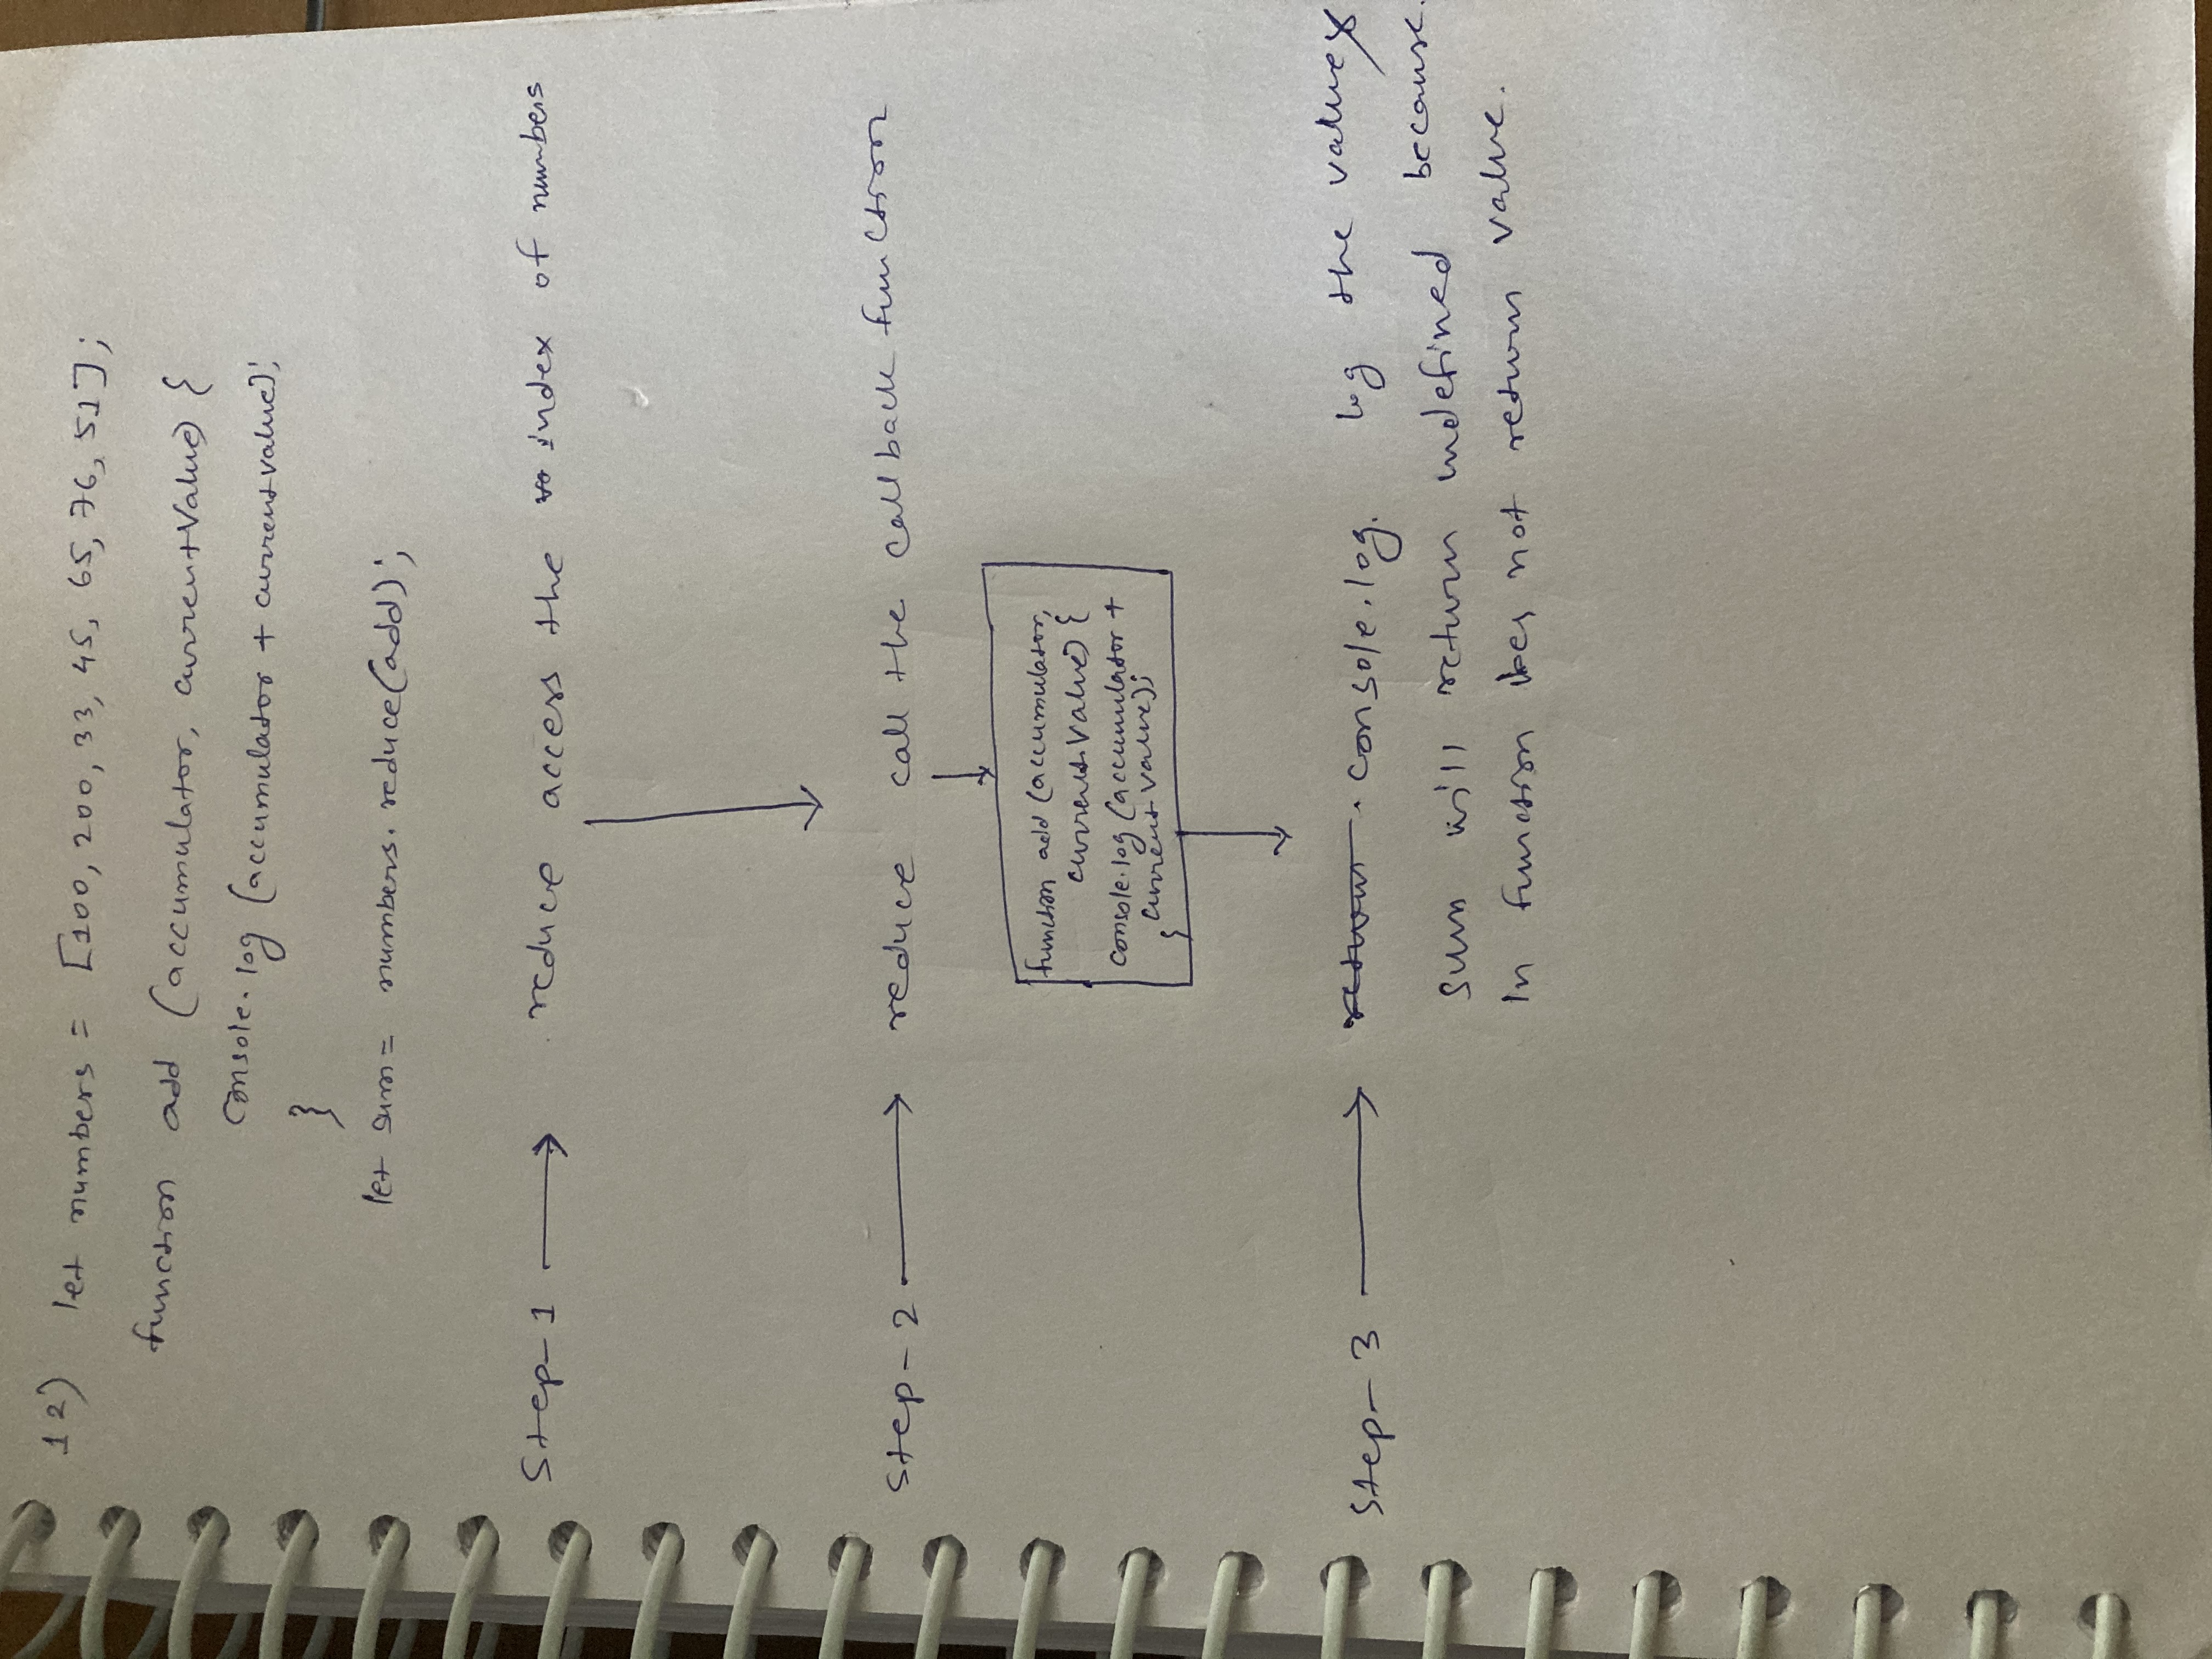 12) let numbers = [100, 200, 33, 45, 65, 76, 51];
function add (accumulator, currentValue) {
console.log (accumulator + currentvalue);
}
let sum = numbers.reduce(add);
Step-1 → reduce access the index of numbers
Step-2 → reduce call the callback function
function add (accumulator,
currentValue) {
console.log (accumulator +
currentValue);
}
Step-3 → return . console.log. log the value
sum will return undefined because.
In function does not return value.